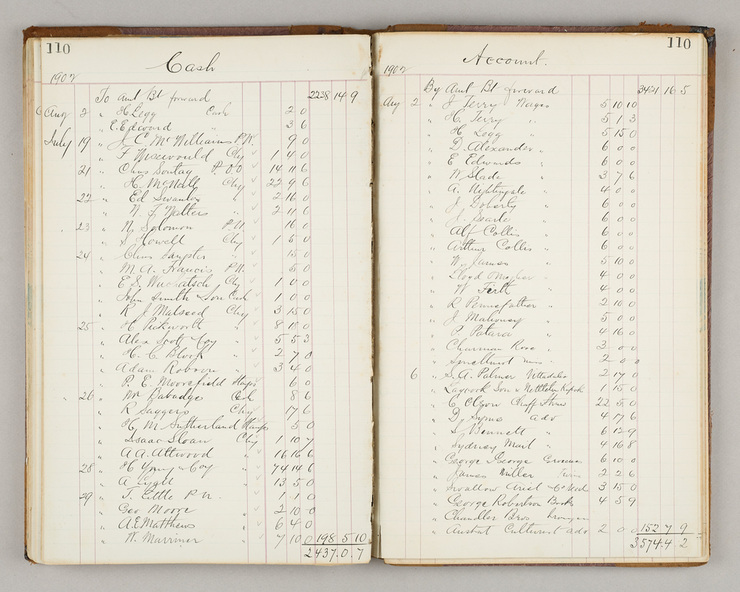 110
Cash
1902
To Amt Bt forward 2238 14 9
Aug 2 " H. Legg Cash 2 0
" E. Edward " 3 6
July 19 " J. C. McWilliams P.N. 9 0
" F. Chq 1 4 0
21 " Chas Sontag P.O.O 14 11 6
" H. McNall Chq 22 9 6
22 " Ed Swanton " 2 16 0
" N. F. Walters " 2 11 6
23 " N. Solomon P.N 16 0
" S Howell Chq 1 5 0
24 " Chas Langster " 15 0
" M. A. Francis P.N. 5 0
" E. S. Chq 1 0 0
" John Smith & Son Cash 1 0 0
" R J Malseed Chq 3 15 0
25 " H. Pickworth " 8 10 0
" Alex Scott & Coy " 5 5 3
" H. C. Block " 2 7 0
" Adam Robson " 3 4 0
" P. E. Moorefield 6 0
26 " Mr Babidge Cash 8 6
" R Saggers Chq 17 6
" H. M Sutherland 5 0
" Isaac Sloan Chq 1 10 7
" A A. Attwood " 16 16 6
28 " H Young & Coy " 74 14 6
" A Lyall " 13 5 0
29 " T. Little P.N. 1 1 0
" Geo Moore " 2 10 0
" A. E Matthews " 6 4 0
" W. Marriner " 7 10 0 198 5 10
2437 . 0 . 7
110
Account.
1902
By Amt Bt forward 3421 16 5
Aug 2 " J Terry Wages 5 10 10
" H. Terry " 5 1 3
" H Legg " 5 15 0
" D. Alexander " 6 0 0
" E Edwards " 6 0 0
" W. Slade " 3 7 6
" A. Nightingale " 4 0 0
" J. Doherty " 6 0 0
" J. Searle " 6 0 0
" Alf Collis " 6 0 0
" Arthur Collis " 6 0 0
" W. James " 5 10 0
" Lloyd " 4 0 0
" W Firth " 4 0 0
" R Pennefather " 2 10 0
" J. Mahoney " 5 0 0
" P. " 4 16 0
" Chairman Rose " 3 0 0
" " 2 0 0
6 " S. A. Palmer 2 17 0
" Laycock Son & Nettleton Kapok 1 15 0
" C Olson 22 5 0
" D. Syme adv 4 17 6
" S. Bennett " 6 12 9
" Sydney Mail " 4 16 8
" George & George 6 10 0
" James Miller Twine 2 2 6
" Swallow Ariel 3 15 0
" George Robertson Books 4 5 9
" Chandler Bros
" Austral Culturist adv 2 0 0 152 7 9
3574 . 4 . 2